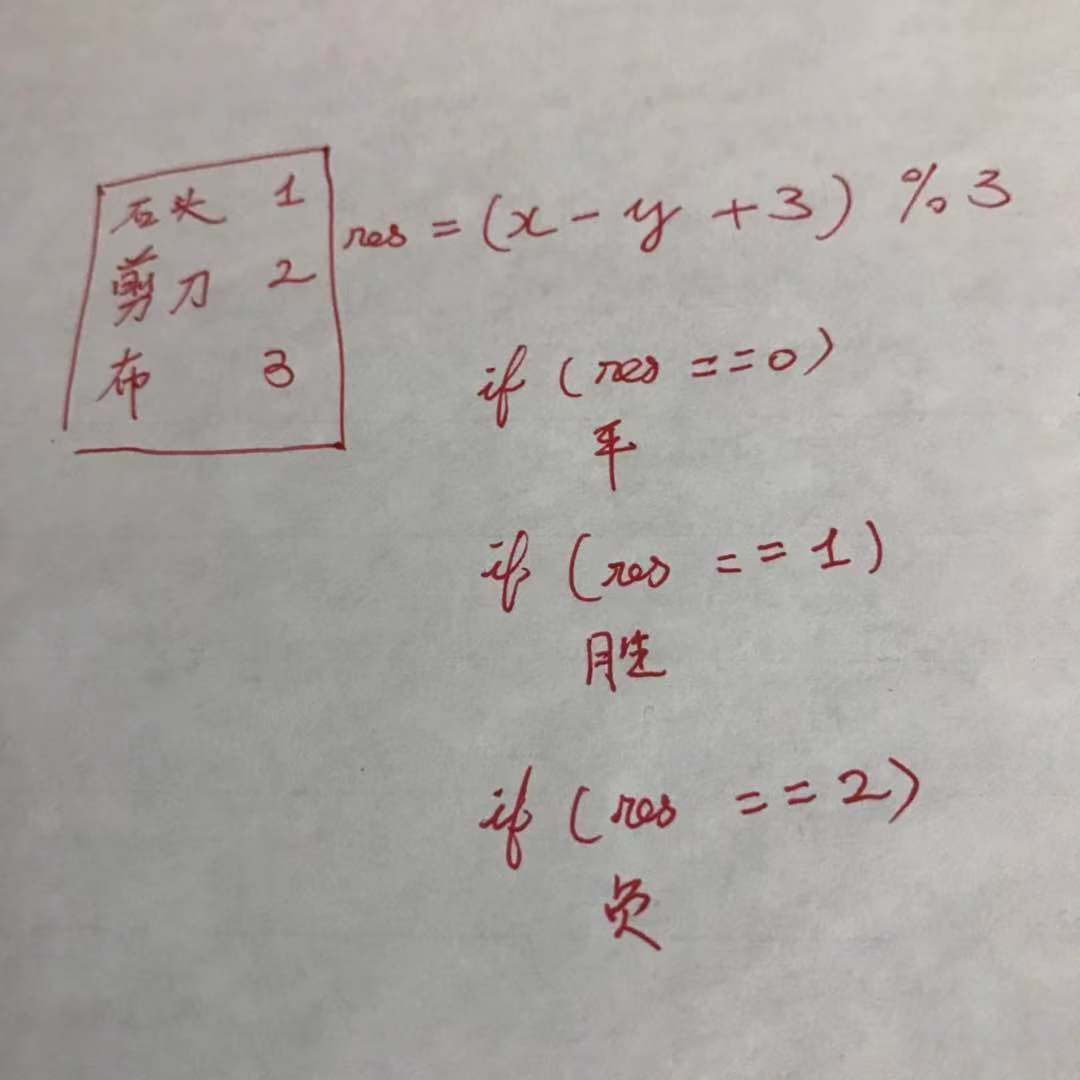 石头 1
剪刀 2
布 3
res = (x - y + 3) % 3
if (res == 0)
平
if (res == 1)
胜
if (res == 2)
负